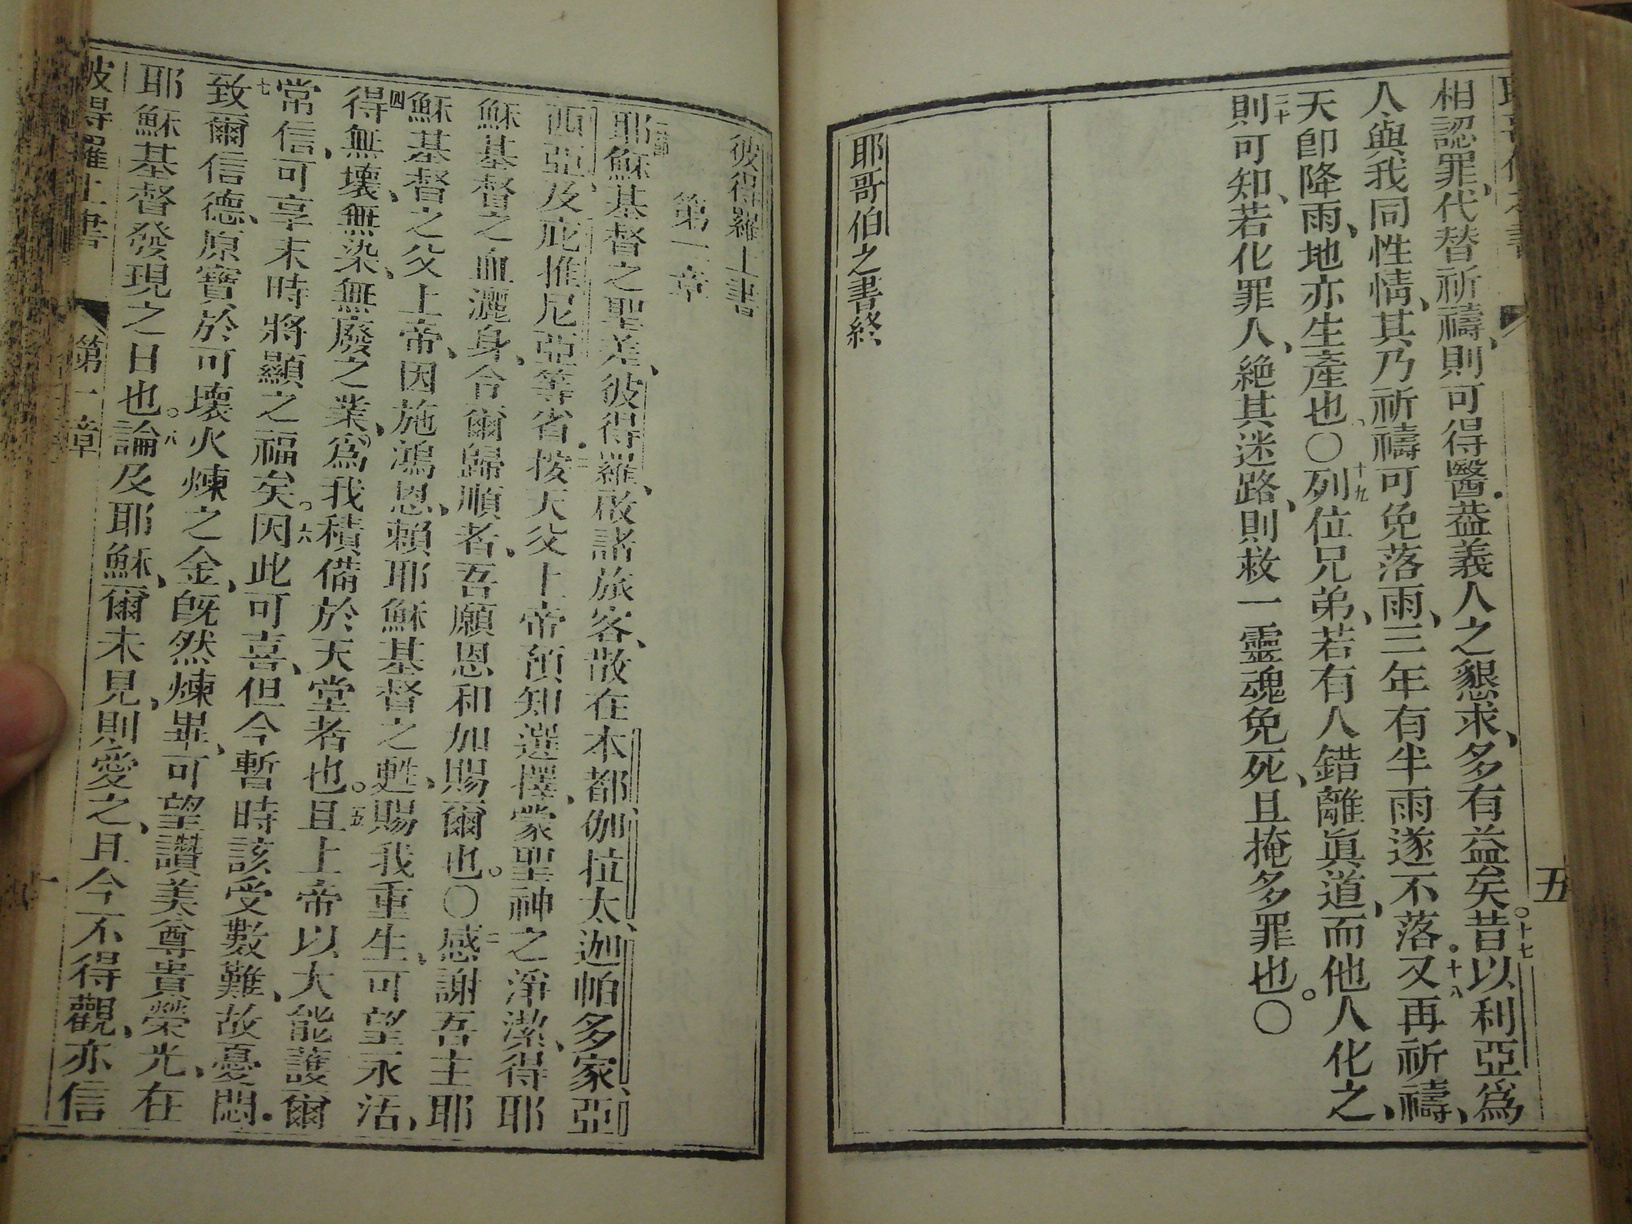 相認罪、代替祈禱、則可得醫．葢義人之懇求、多有益矣。十七昔以利亞爲
人與我同性情、其乃祈禱可免落雨、三年有半雨遂不落．十八又再祈禱、
天卽降雨、地亦生產也、○十九列位兄弟、若有人錯離眞道、而他人化之、
二十則可知、若化罪人、絶其迷路、則救一靈魂免死、且掩多罪也。○
耶哥伯之書終
五
彼得羅上書
第一章
耶穌基督之聖差、彼得羅、啟諸旅客、散在本都、伽拉太、迦帕多家、亞
西亞、及庇推尼亞等省．二按天父上帝預知選擇、蒙聖神之淨潔、得耶
穌基督之血灑身、令爾歸順者、吾願恩和加賜爾也。○三感謝吾主耶
穌基督之父上帝、因施鴻恩、賴耶穌基督之甦、賜我重生、可望永活、
四得無壞、無染、無廢之業、爲我積備於天堂者也。五且上帝以大能護爾
常信、可享末時將顯之福矣。六因此可喜、但今暫時該受數難、故憂悶．
七致爾信德、原寶於可壞火煉之金、旣然煉畢、可望讚美尊貴榮光、在
耶穌基督發現之日也。八論及耶穌、爾未見、則愛之、且今不得觀、亦信
彼得羅上書
第一章
一